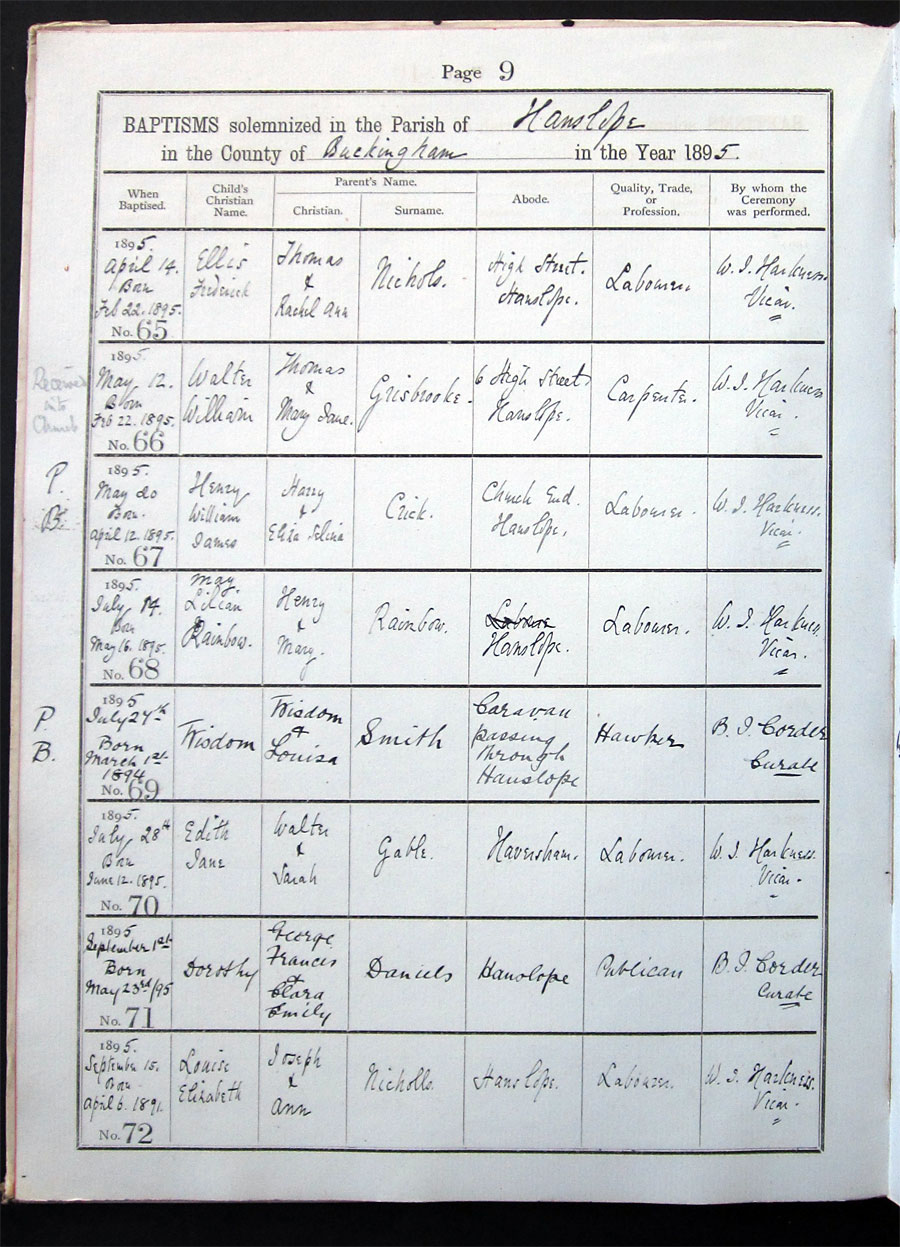 Page 9
BAPTISMS solemnized in the Parish of Hanslope
in the County of Buckingham in the Year 1895.
When Baptised.
Child's Christian Name.
Parent's Name.
Christian.
Surname.
Abode.
Quality, Trade, or Profession.
By whom the Ceremony was performed.
1895.
April 14.
Born
Feb 22. 1895.
No. 65
Ellis
Frederick
Thomas
&
Rachel Ann
Nichols.
High Street.
Hanslope.
Labourer.
W. J. Harkness.
Vicar.
Received
into
Church
1895.
May 12.
Born
Feb 22. 1895.
No. 66
Walter
William
Thomas
&
Mary Jane.
Grisbrooke.
6 High Street
Hanslope.
Carpenter.
W. J. Harkness
Vicar.
P.
B.
1895.
May 20
Born.
April 12. 1895.
No. 67
Henry
William
James
Harry
&
Eliza Selina
Crick.
Church End.
Hanslope.
Labourer.
W. J. Harkness.
Vicar.
1895.
July 14.
Born
May 16. 1895.
No. 68
May
Lilian
Rainbow.
Henry
&
Mary.
Rainbow.
Hanslope.
Labourer.
W. J. Harkness.
Vicar.
P.
B.
1895
July 27th
Born
March 1st
1894
No. 69
Wisdom
Wisdom
&
Louisa
Smith
Caravan
passing
through
Hanslope
Hawker
B. J. Corder
Curate
1895.
July 28th
Born
June 12. 1895.
No. 70
Edith
Jane
Walter
&
Sarah
Gable.
Haversham.
Labourer.
W. J. Harkness.
Vicar.
1895
September 1st
Born
May 23rd/95
No. 71
Dorothy
George
Frances
&
Clara
Emily
Daniels
Hanslope
Publican
B. J. Corder
Curate
1895.
September 15.
Born
April 6. 1891.
No. 72
Louise
Elizabeth
Joseph
&
Ann
Nicholls.
Hanslope.
Labourer.
W. J. Harkness.
Vicar.